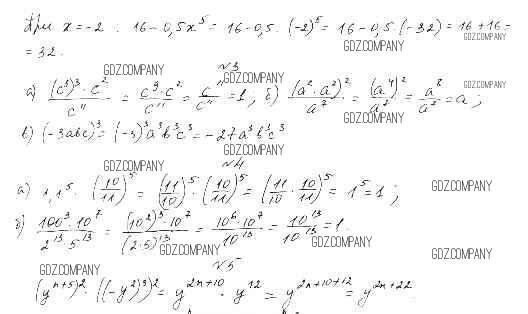 При x = -2 : 16 - 0,5x⁵ = 16 - 0,5 · (-2)⁵ = 16 - 0,5 · (-32) = 16 + 16 =
GDZ.COMPANY
GDZ.COMPANY
= 32.
GDZ.COMPANY
№3
GDZ.COMPANY
GDZ.COMPANY
а) (c³)³ · c² / c¹¹ = c⁹ · c² / c¹¹ = c¹¹ / c¹¹ = 1; б) (a² · a²)² / a⁷ = (a⁴)² / a⁷ = a⁸ / a⁷ = a;
GDZ.COMPANY
в) (-3abc)³ = (-3)³a³b³c³ = -27a³b³c³
GDZ.COMPANY
№4
GDZ.COMPANY
а) 1,1⁵ · (10/11)⁵ = (11/10)⁵ · (10/11)⁵ = (11/10 · 10/11)⁵ = 1⁵ = 1;
GDZ.COMPANY
б) 100³ · 10⁷ / 2¹³ · 5¹³ = (10²)³ · 10⁷ / (2 · 5)¹³ = 10⁶ · 10⁷ / 10¹³ = 10¹³ / 10¹³ = 1.
GDZ.COMPANY
GDZ.COMPANY
GDZ.COMPANY
№5
GDZ.COMPANY
(yⁿ⁺⁵)² · ((-y²)³)² = y²ⁿ⁺¹⁰ · y¹² = y²ⁿ⁺¹⁰⁺¹² = y²ⁿ⁺²².